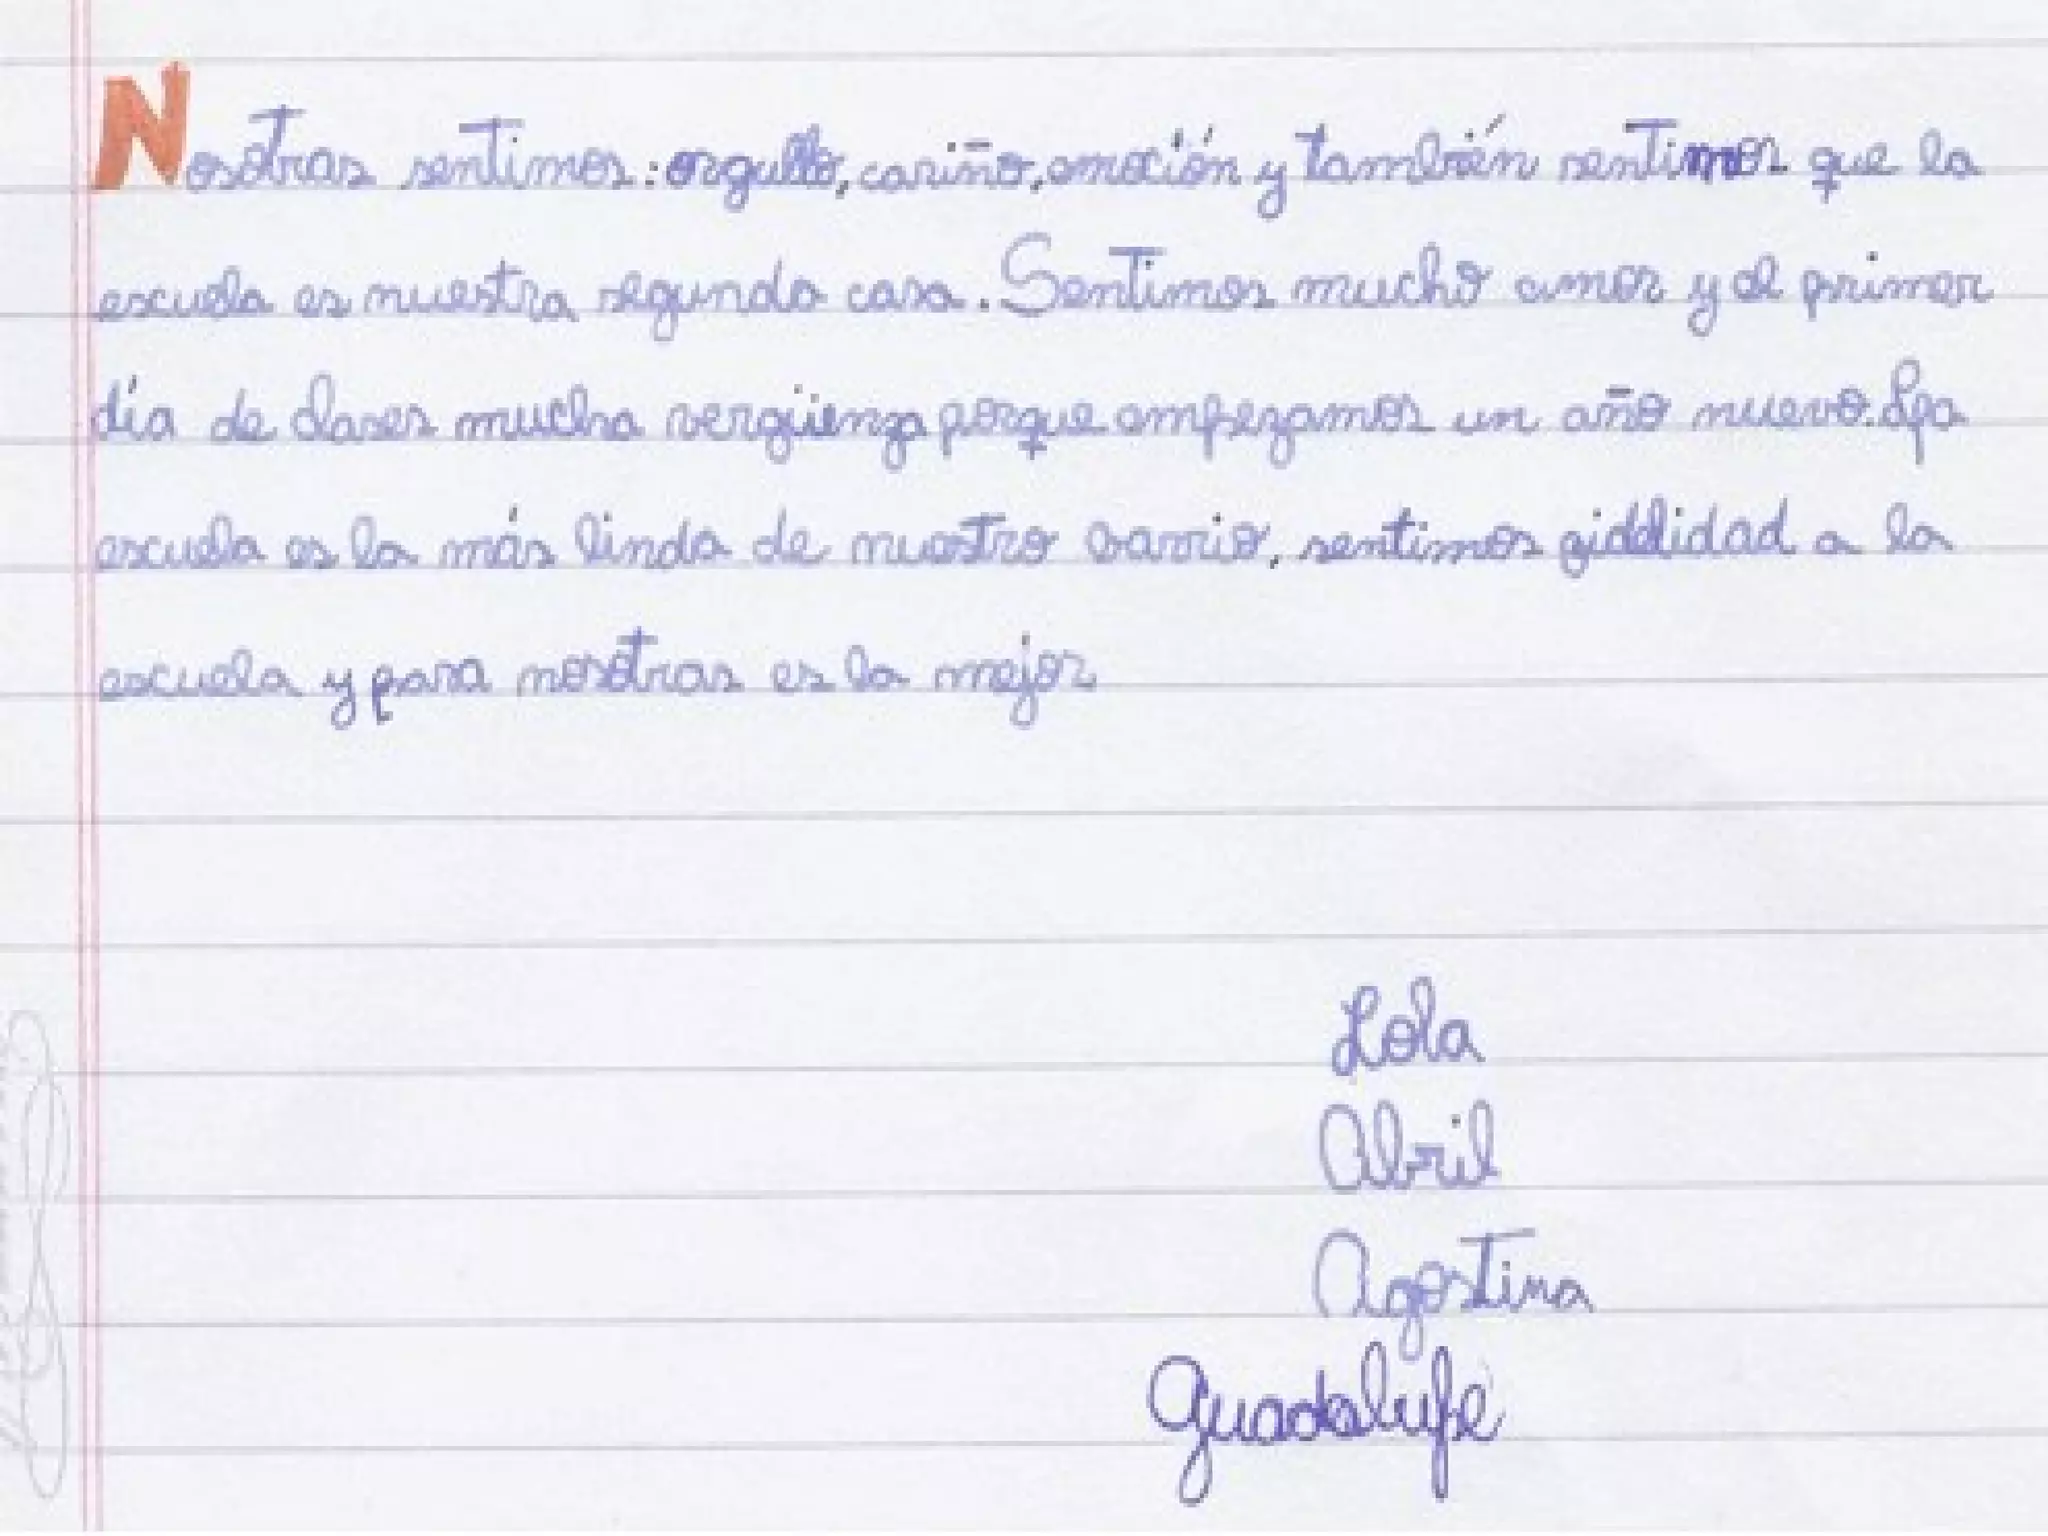 Nosotras sentimos: orgullo, cariño, emoción y también sentimos que la
escuela es nuestra segunda casa. Sentimos mucho amor y el primer
día de clases mucha vergüenza porque empezamos un año nuevo. La
escuela es la más linda de nuestro barrio, sentimos fidelidad a la
escuela y para nosotras es la mejor
Lola
Abril
Agostina
Guadalupe